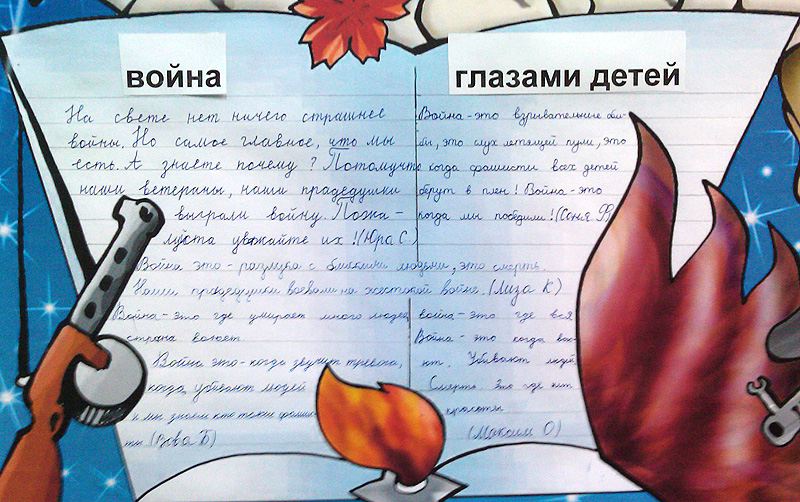 война
глазами детей
На свете нет ничего страшнее
войны. Но самое главное, что мы
есть. А знаете почему? Потомучто
наши ветераны, наши прадедушки
выграли войну. Пожа-
луйста уважайте их! (Юра С.)
Война-это взрывательные бом-
бы, это слух летящей пули, это
когда фашисты всех детей
берут в плен! Война-это
когда мы победили! (Соня Ф)
Война это-разлука с близкими людьми, это смерть.
Наши прадедушки воевали на жестокой войне. (Лиза К)
Война-это где умирает много людей
страна воюет
Война это-когда звучит тревога,
когда убивают людей
и мы знаем кто такие фашис-
ты (Вова Б)
война-это где вся
Война-это когда вою-
ют. Убивают людей
Смерть. Это где нет
красоты
(Максим О)